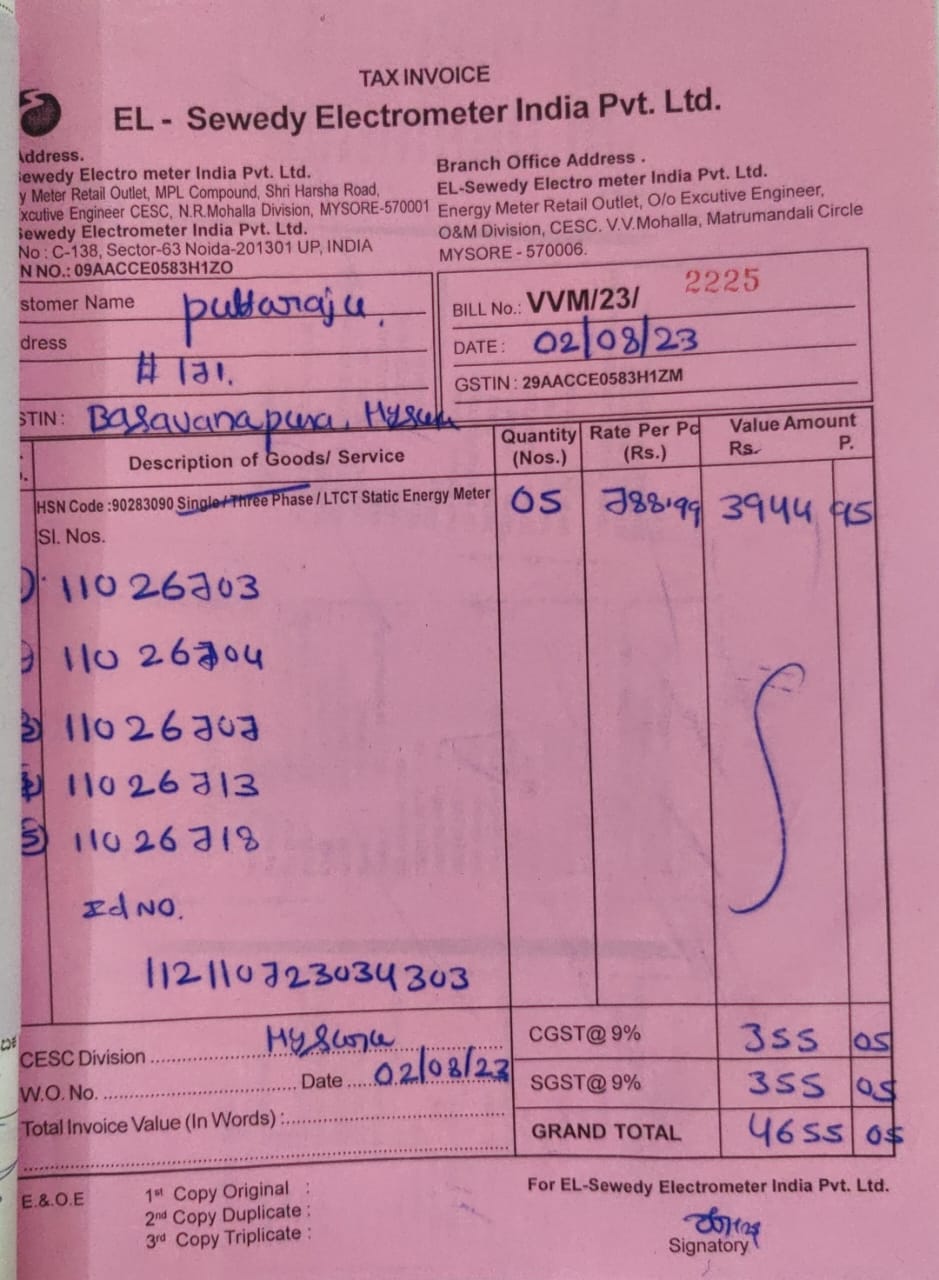 TAX INVOICE
EL - Sewedy Electrometer India Pvt. Ltd.
Address.
Sewedy Electro meter India Pvt. Ltd.
y Meter Retail Outlet, MPL Compound, Shri Harsha Road,
xcutive Engineer CESC, N.R.Mohalla Division, MYSORE-570001
Sewedy Electrometer India Pvt. Ltd.
No : C-138, Sector-63 Noida-201301 UP, INDIA
N NO.: 09AACCE0583H1ZO
Branch Office Address .
EL-Sewedy Electro meter India Pvt. Ltd.
Energy Meter Retail Outlet, O/o Excutive Engineer,
O&M Division, CESC. V.V.Mohalla, Matrumandali Circle
MYSORE - 570006.
stomer Name puttaraju.
dress # 171.
STIN : Basavanapura, Mysuru
BILL No.: VVM/23/ 2225
DATE : 02/08/23
GSTIN : 29AACCE0583H1ZM
Description of Goods/ Service
Quantity (Nos.)
Rate Per Pc (Rs.)
Value Amount
Rs. P.
HSN Code :90283090 Single / Three Phase / LTCT Static Energy Meter 05 788.99 3944 95
Sl. Nos.
1) 11026703
2) 11026704
3) 11026707
4) 11026713
5) 11026718
Id NO.
112110723034303
CESC Division Mysore
W.O. No. Date 02/08/23
Total Invoice Value (In Words) :
CGST@ 9% 355 05
SGST@ 9% 355 05
GRAND TOTAL 4655 05
E.&.O.E
1st Copy Original :
2nd Copy Duplicate :
3rd Copy Triplicate :
For EL-Sewedy Electrometer India Pvt. Ltd.
Signatory